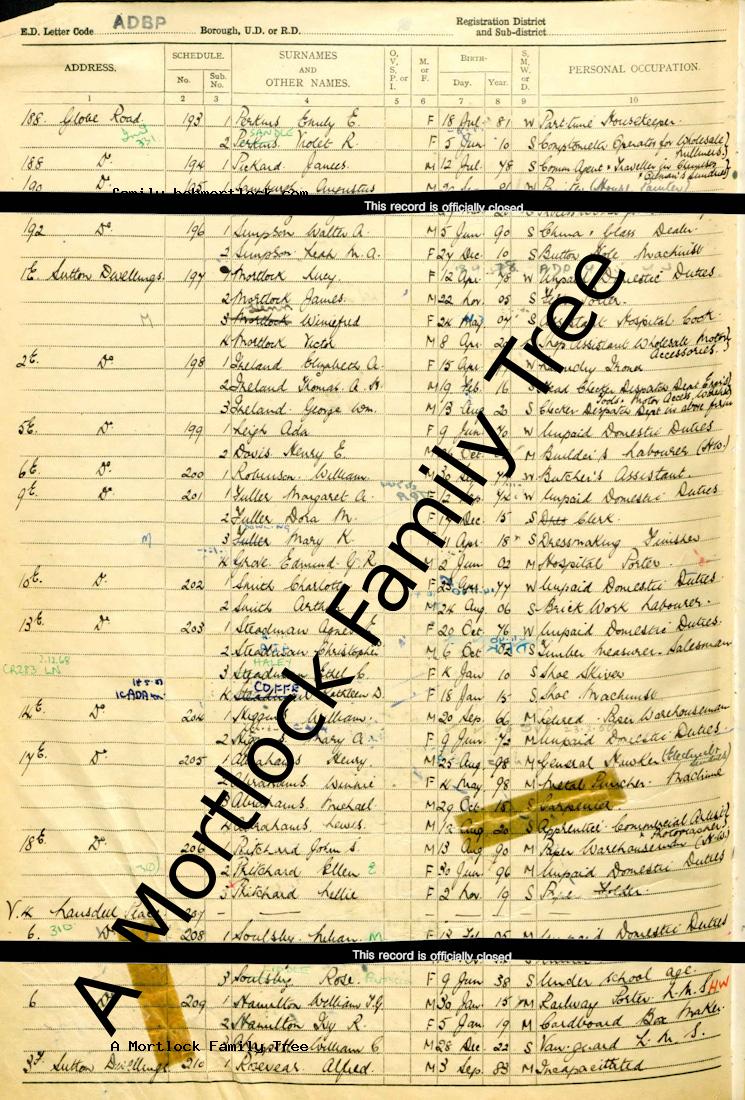 E.D. Letter Code ADBP Borough, U.D. or R.D. Registration District and Sub-district
ADDRESS. SCHEDULE. No. Sub. No. SURNAMES AND OTHER NAMES. O, V, S, P, or I. M. or F. BIRTH- Day. Year. S, M, W, or D. PERSONAL OCCUPATION.
1 2 3 4 5 6 7 8 9 10
188 Globe Road 193 1 Perkins Emily E. F 18 Jul 81 W Part-time Housekeeper
SANDLE
2 Perkins Violet R. F 5 Jun 10 S Comptometer Operator for Wholesale Milliners
188 Do 194 1 Pickard James M 12 Jul 78 S Comm Agent & Traveller in
190 Do Augustus
family.bobmortlock.com
This record is officially closed.
192 Do 196 1 Simpson Walter A. M 5 Jun 90 S China & Glass Dealer
2 Simpson Leah M. A. F 27 Dec 10 S Button Hole Machinist
1E Sutton Dwellings 197 1 Mortlock Lucy F 12 Apr 78 W Unpaid Domestic Duties
2 Mortlock James M 22 Nov 05 S Porter
M 3 Mortlock Winifred F 24 May 07 S Assistant Hospital Cook
4 Mortlock Victor M 8 Apr S Shop Assistant Wholesale Motor Accessories
2E Do 198 1 Ireland Elizabeth A. F 15 Apr W Laundry Ironer
2 Ireland Thomas A. H. M 19 Feb 16 Head Checker Despatch Dept
3 Ireland George Wm. M 13 Aug 20 S Checker Despatch Dept in above firm
5E Do 199 1 Leigh Ada F 9 Jun 70 W Unpaid Domestic Duties
2 Davis Henry E. M Oct M Builder's Labourer (H.W.)
6E Do 200 1 Robinson William M 30 Sep W Butcher's Assistant
9E Do 201 1 Fuller Margaret A. F 12 Sep 74 W Unpaid Domestic Duties
2 Fuller Dora M. F 17 Dec 15 S Clerk
M 3 Fuller Mary K. Apr 18 S Dressmaking Finisher
4 Grove Edmund G. R. M 2 Jun 02 M Hospital Porter
10E Do 202 1 Smith Charlotte F 77 W Unpaid Domestic Duties
2 Smith Arthur M 24 Aug 06 S Brick Work Labourer
13E Do 203 1 Steadman Agnes E. F 20 Oct 76 W Unpaid Domestic Duties
2 Steadman Christopher M 6 Oct 02 Timber Measurer. Salesman
2.12.68 HALEY
CR283 LN 3 Steadman Ethel C. F 4 Jan 10 S Shoe Skiver
4 Steadman Kathleen D. F 18 Jan 15 S Shoe Machinist
14E Do 204 1 Higgins William M 20 Sep 66 M Retired Paper Warehouseman
2 Mary A. F 9 Jun 72 M Unpaid Domestic Duties
17E Do 205 1 Abrahams Henry M 25 Aug 98 M General Hawker
2 Abrahams Winnie F 4 May 98 M Metal Puncher Machine
3 Abrahams Michael M 29 Oct 18 S Carpenter
4 Abrahams Lewis M 13 Aug 20 S Apprentice Commercial Artist & Photographer
18E Do 206 1 Pritchard John S. M 13 Aug 90 M Paper Warehouseman (H.W.)
2 Pritchard Ellen E F 30 Jun 96 M Unpaid Domestic Duties
3 Pritchard Nellie F 2 Nov 19 S Folder
V. 4 Lansdell Place 207 - - - - - -
6 310 Do 208 1 Soulsby Lilian M F 13 Feb 05 M Unpaid Domestic Duties
This record is officially closed.
3 Soulsby Rose F 9 Jun 38 S Under School age.
6 209 1 Hamilton William T.G. M 30 Jan 15 M Railway Porter L.M.S. HW
2 Hamilton Ivy R F 5 Jan 19 M Cardboard Box Maker
William C M 28 Dec 22 S Van guard L.M.S.
3F Sutton Dwellings 210 1 Rosevear Alfred M 3 Sep 83 M Incapacitated
A Mortlock Family Tree
A Mortlock Family Tree